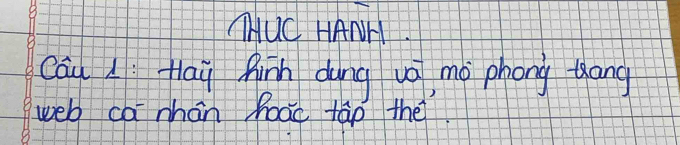 THỰC HÀNH.
Câu 1: Hãy hình dung và mô phỏng trang
web cá nhân hoặc tập thể.